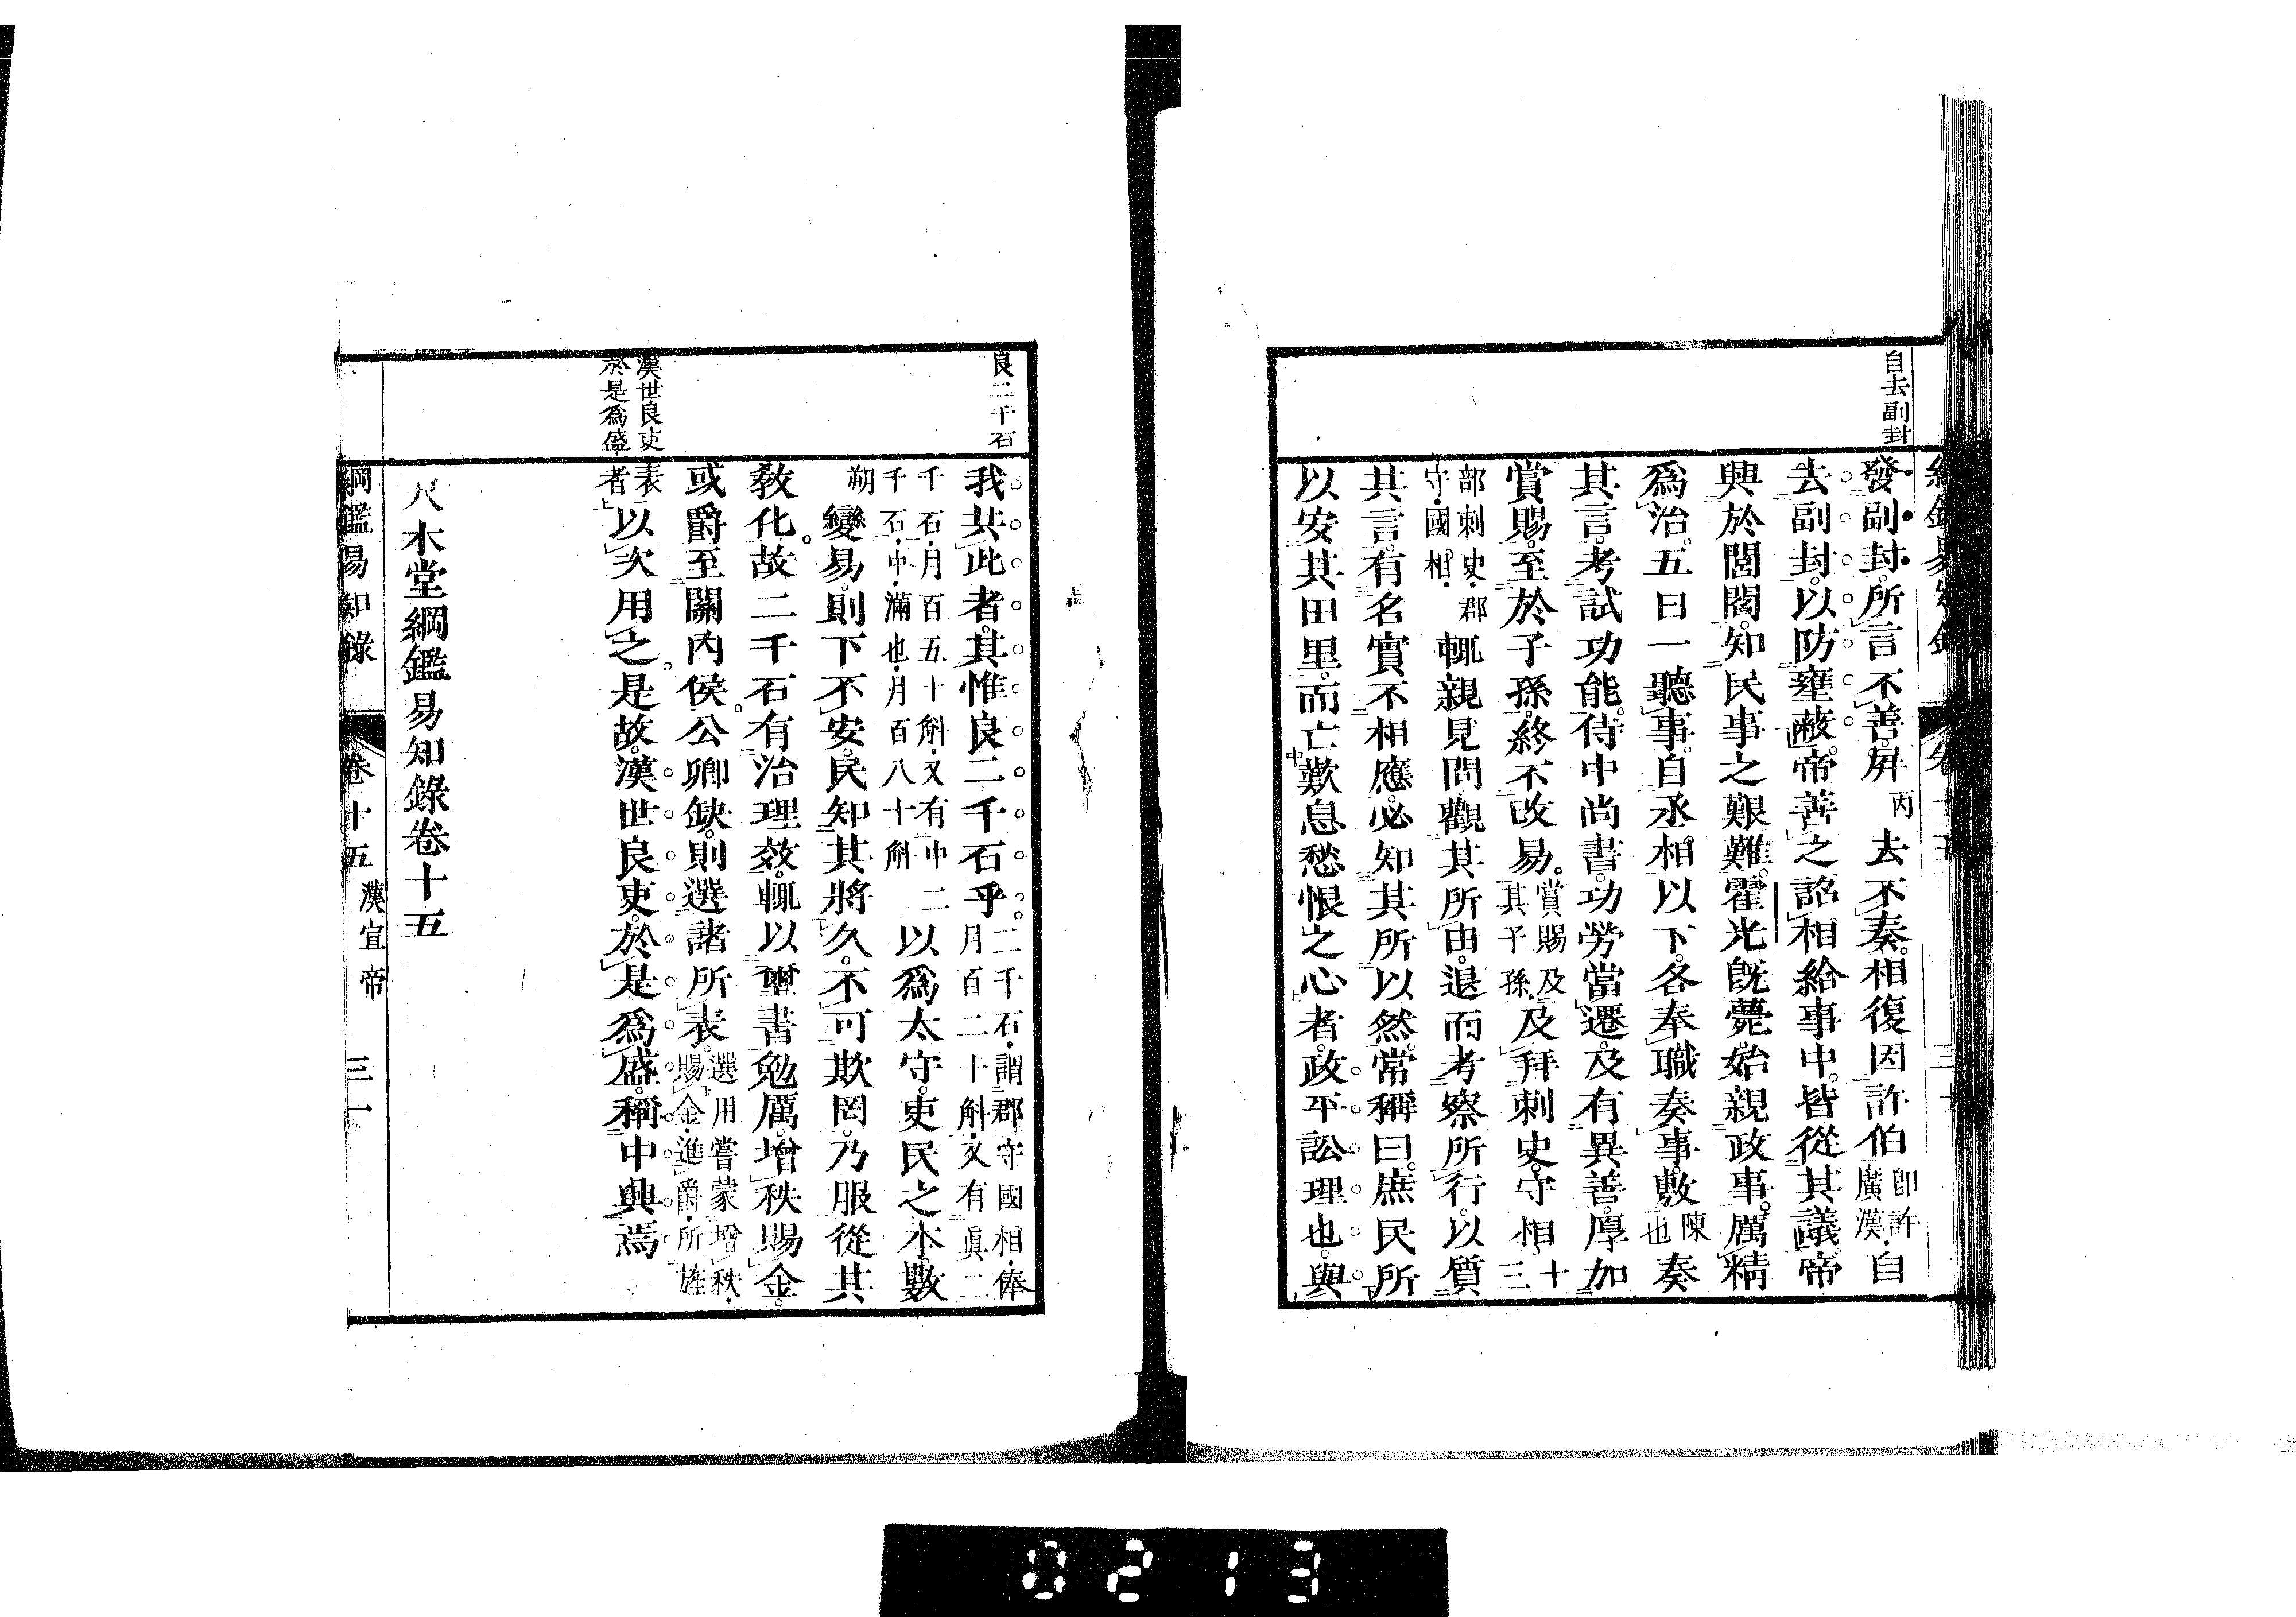 自去副封
發副封所言不善屏丙去不奏相復因許伯即許廣漢自
去副封以防壅蔽帝善之詔相給事中皆從其議帝
興於閭閻知民事之艱難霍光既薨始親政事厲精
爲治五日一聽事自丞相以下各奉職奏事敷陳也奏
其言考試功能侍中尚書功勞當遷及有異善厚加
賞賜至於子孫終不改易賞賜及其子孫及拜刺史守相十三
部刺史郡守國相輒親見問觀其所由退而考察所行以質
其言有名實不相應必知其所以然常稱曰庶民所
以安其田里而亡歎息愁恨之心者政平訟理也與
良二千石
我共此者其惟良二千石乎二千石謂郡守國相俸月百二十斛又有眞二
千石月百五十斛又有中二千石中滿也月百八十斛以爲太守吏民之本數
朔變易則下不安民知其將久不可欺罔乃服從其
敎化故二千石有治理效輒以璽書勉厲增秩賜金
或爵至關內侯公卿缺則選諸所表選用嘗蒙增秩賜金進爵所旌
漢世良吏
於是爲盛
表者以次用之是故漢世良吏於是爲盛稱中興焉
尺木堂綱鑑易知錄卷十五
綱鑑易知錄 卷十五 漢宣帝 三一
0213